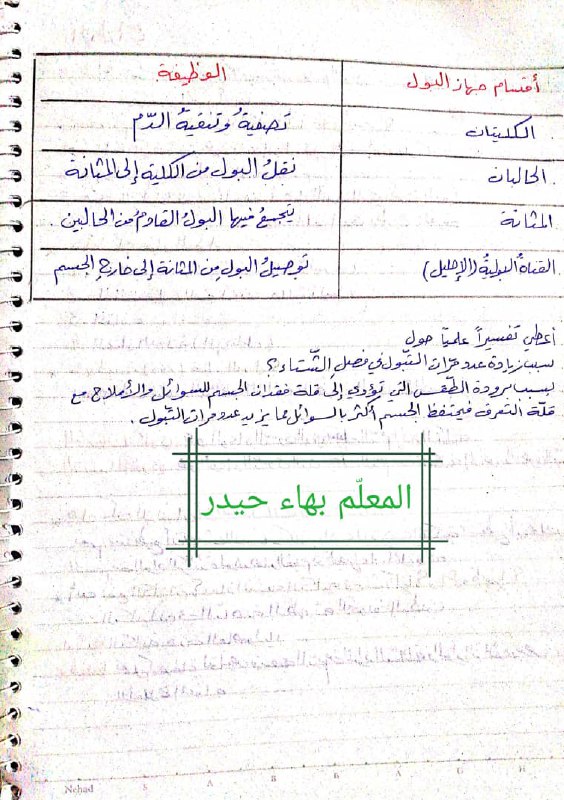 أقسام جهاز البول الوظيفة
الكليتان تصفيةُ وتنقيةُ الدّم
الحالبان نقلُ البول من الكلية إلى المثانة
المثانة يتجمعُ فيها البولُ القادمُ من الحالبين
القناةُ البوليةُ (الإحليل) توصيلُ البول مِن المثانة إلى خارج الجسم
أعطي تفسيراً علميّاً حول
سبب زيادة عدد مرّات التبّول في فصلِ الشّتاء؟
بسبب برودة الطّقس التي تؤدي إلى قلة فقدان الجسم للسوائل والأملاح مع
قلّة التعرق فيحتفظ الجسم أكثر بالسوائل مما يزيد عدد مرات التبّول.
المعلّم بهاء حيدر
Nehad